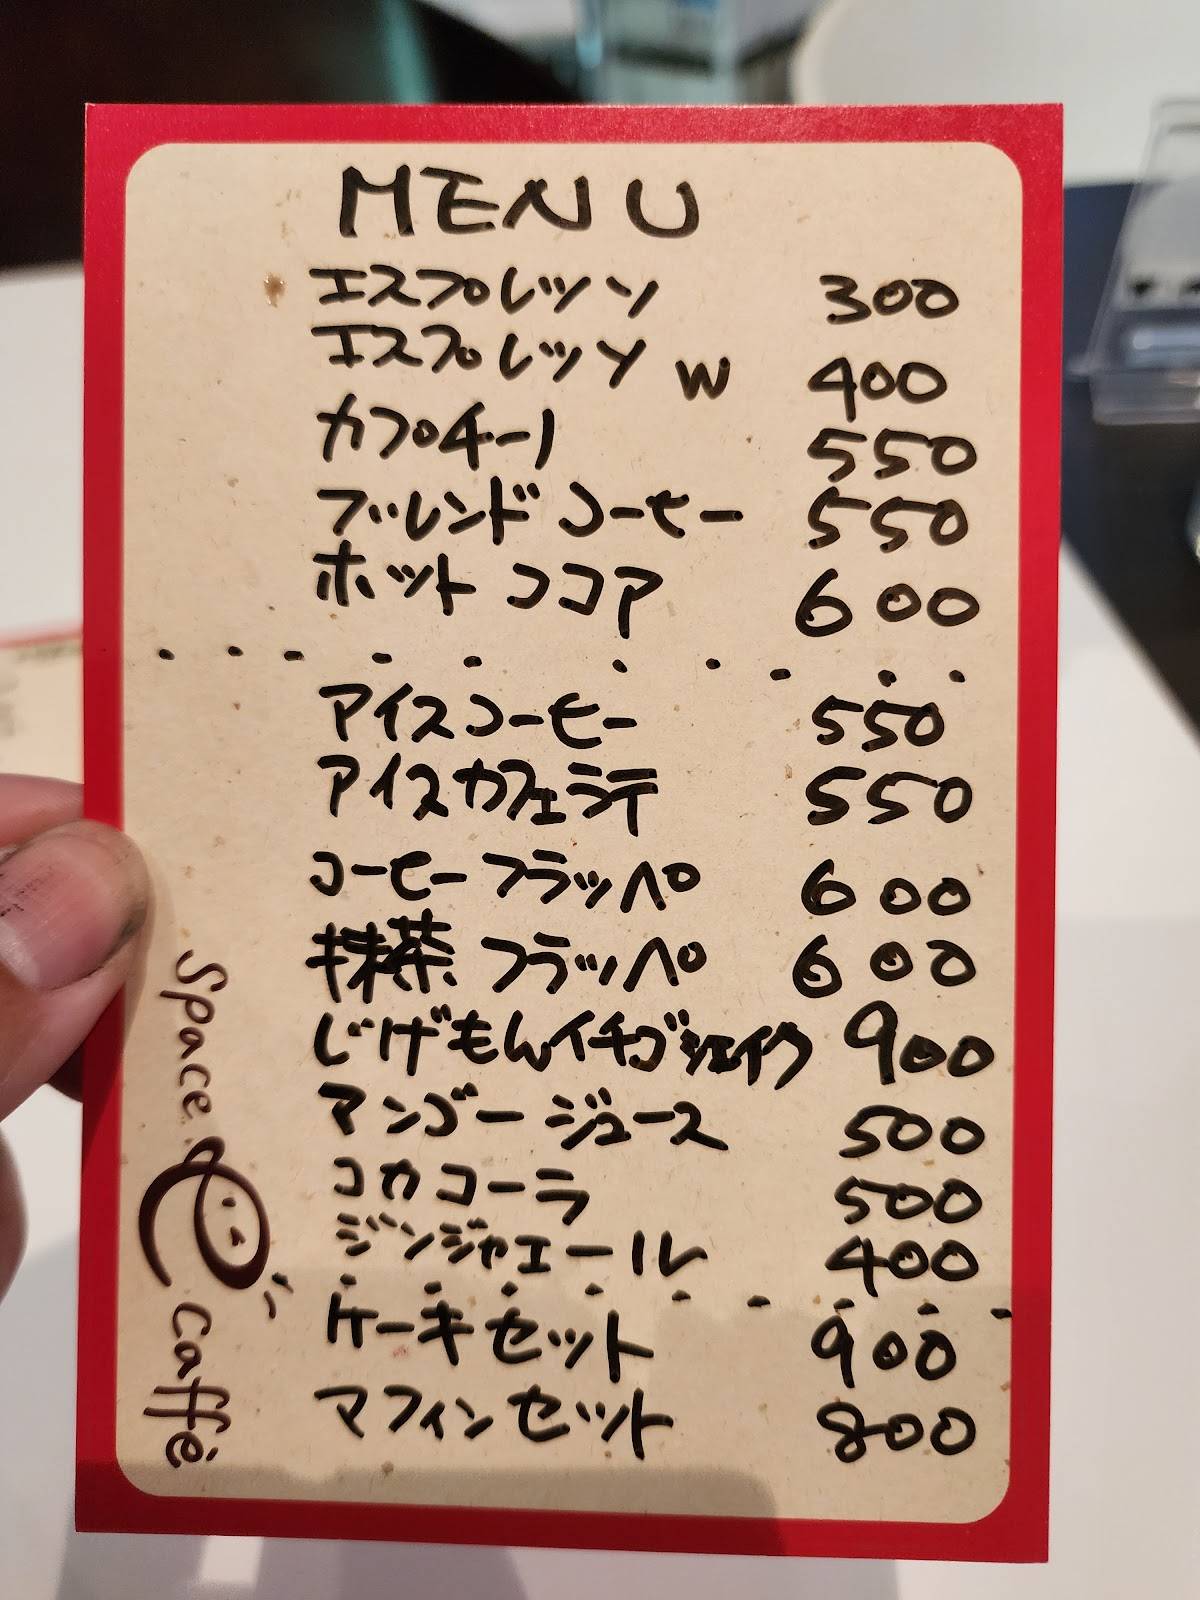 MENU
エスプレッソ 300
エスプレッソ W 400
カプチーノ 550
ブレンドコーヒー 550
ホットココア 600
アイスコーヒー 550
アイスカフェラテ 550
コーヒーフラッペ 600
抹茶フラッペ 600
じげもんイチゴシェイク 900
マンゴージュース 500
コカコーラ 500
ジンジャエール 400
ケーキセット 900
マフィンセット 800
Space e caffè